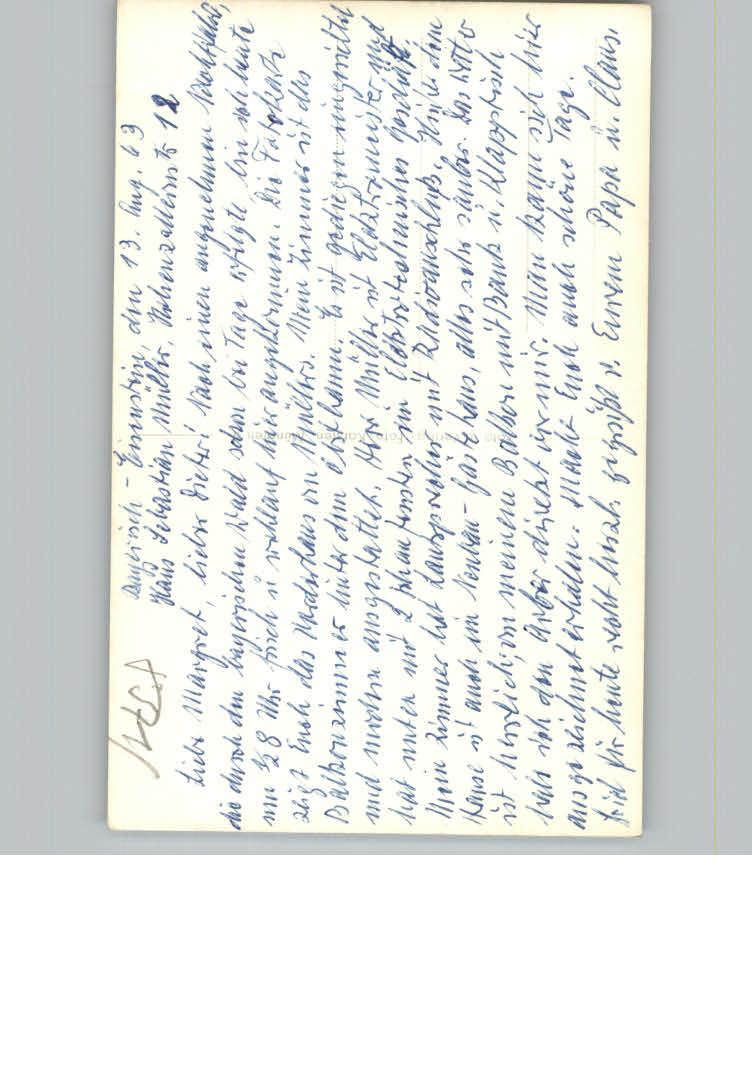 Bayrisch-Eisenstein, den 13. Aug. 63
Haus Sebastian Müller, Hohenzollernstr 12
Liebe Margret, lieber Dieter! Nach einer angenehmen
die durch den bayrischen Wald schon bei Tage erfolgte bin ich heute
um ½8 Uhr frisch u. wohlauf hier angekommen. Die
zeigt Euch das Vorderhaus von Müllers. Mein Zimmer ist das
Balkonzimmer unter dem. Es ist gediegen eingerichtet
und modern ausgestattet. Herr Müller ist Elektromeister und
hat unten mit 2 Schaufenster ein Elektrotechnisches Geschäft.
Mein Zimmer hat Lautsprecher mit Radioanschluß. Hinter dem
Hause ist auch ein Neubau-Gästehaus, alles sehr sauber. Das Wetter
ist herrlich, von meinem Balkon mit Bank u. Klapptisch
hab ich den Arber direkt vor mir. Man kann sich hier
ausgezeichnet erholen. Macht Euch auch schöne Tage.
Seid für heute recht herzl. gegrüßt v. Eurem Papa u. Claus.
Foto Verlag: Foto, München